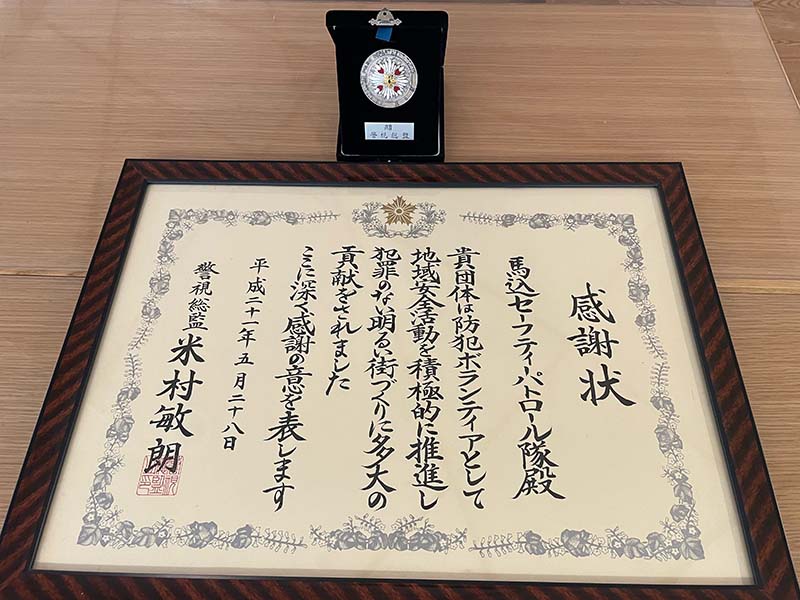 感謝状
馬込セーフティーパトロール隊殿
貴団体は防犯ボランティアとして
地域安全活動を積極的に推進し
犯罪のない明るい街づくりに多大の
貢献をされました
ここに深く感謝の意を表します
平成二十一年五月二十八日
警視総監 米村敏朗